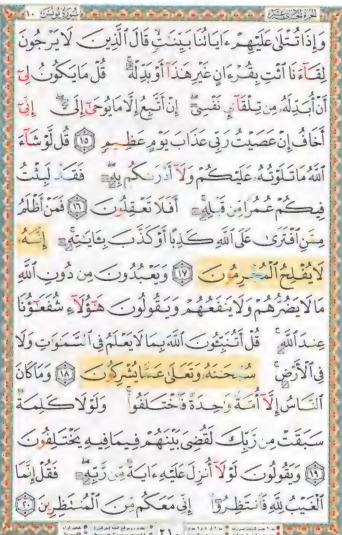 سُورَةُ يُونُسَ ١٠
وَإِذَا تُتْلَىٰ عَلَيْهِمْ ءَايَاتُنَا بَيِّنَٰتٍ قَالَ ٱلَّذِينَ لَا يَرْجُونَ
لِقَآءَنَا ٱئْتِ بِقُرْءَانٍ غَيْرِ هَٰذَآ أَوْ بَدِّلْهُ ۚ قُلْ مَا يَكُونُ لِىٓ
أَنْ أُبَدِّلَهُۥ مِن تِلْقَآئِ نَفْسِىٓ ۖ إِنْ أَتَّبِعُ إِلَّا مَا يُوحَىٰٓ إِلَىَّ ۖ إِنِّىٓ
أَخَافُ إِنْ عَصَيْتُ رَبِّى عَذَابَ يَوْمٍ عَظِيمٍ ١٥ قُل لَّوْ شَآءَ
ٱللَّهُ مَا تَلَوْتُهُۥ عَلَيْكُمْ وَلَآ أَدْرَىٰكُم بِهِۦ ۖ فَقَدْ لَبِثْتُ
فِيكُمْ عُمُرًا مِّن قَبْلِهِۦٓ ۚ أَفَلَا تَعْقِلُونَ ١٦ فَمَنْ أَظْلَمُ
مِمَّنِ ٱفْتَرَىٰ عَلَى ٱللَّهِ كَذِبًا أَوْ كَذَّبَ بِـَٔايَٰتِهِۦٓ ۚ إِنَّهُۥ
لَا يُفْلِحُ ٱلْمُجْرِمُونَ ١٧ وَيَعْبُدُونَ مِن دُونِ ٱللَّهِ
مَا لَا يَضُرُّهُمْ وَلَا يَنفَعُهُمْ وَيَقُولُونَ هَٰٓؤُلَآءِ شُفَعَٰٓؤُنَا
عِندَ ٱللَّهِ ۚ قُلْ أَتُنَبِّـُٔونَ ٱللَّهَ بِمَا لَا يَعْلَمُ فِى ٱلسَّمَٰوَٰتِ وَلَا
فِى ٱلْأَرْضِ ۚ سُبْحَٰنَهُۥ وَتَعَٰلَىٰ عَمَّا يُشْرِكُونَ ١٨ وَمَا كَانَ
ٱلنَّاسُ إِلَّآ أُمَّةً وَٰحِدَةً فَٱخْتَلَفُوا۟ ۚ وَلَوْلَا كَلِمَةٌ
سَبَقَتْ مِن رَّبِّكَ لَقُضِىَ بَيْنَهُمْ فِيمَا فِيهِ يَخْتَلِفُونَ
١٩ وَيَقُولُونَ لَوْلَآ أُنزِلَ عَلَيْهِ ءَايَةٌ مِّن رَّبِّهِۦ ۖ فَقُلْ إِنَّمَا
ٱلْغَيْبُ لِلَّهِ فَٱنتَظِرُوٓا۟ إِنِّى مَعَكُم مِّنَ ٱلْمُنتَظِرِينَ ٢٠
٢١٠